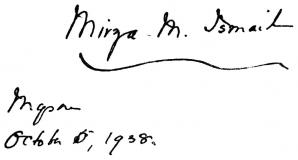 Mirza M. Ismail
Mysore
October 5, 1938.